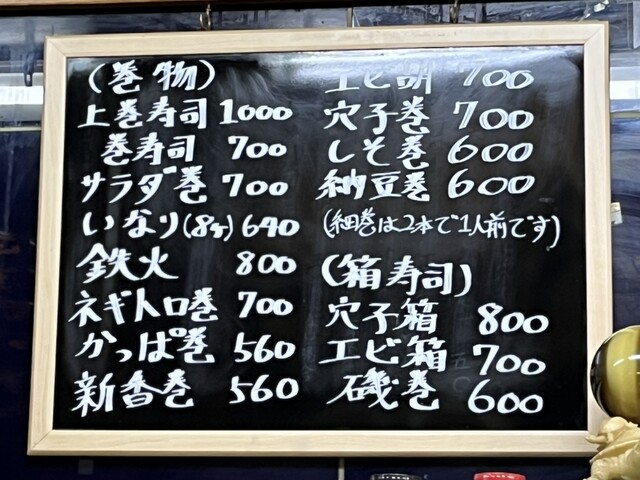 (巻物)
上巻寿司 1000
巻寿司 700
サラダ巻 700
いなり(8ヶ) 640
鉄火 800
ネギトロ巻 700
かっぱ巻 560
新香巻 560
エビ胡 700
穴子巻 700
しそ巻 600
納豆巻 600
(細巻は2本で1人前です)
(箱寿司)
穴子箱 800
エビ箱 700
磯巻 600